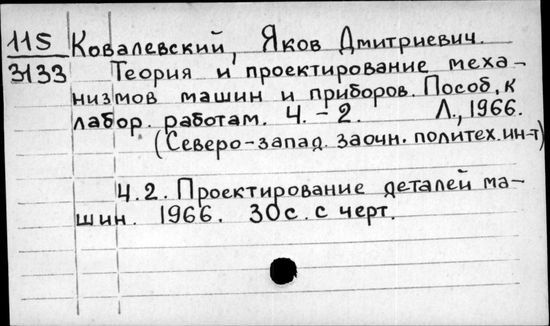 115 Ковалевский, Яков Дмитриевич.
3133 Теория и проектирование меха-
низмов машин и приборов. Пособ. к
лабор. работам. Ч. - 2. Л., 1966.
(Северо-запад. заочн. политех. ин-т)
Ч. 2. Проектирование деталей ма-
шин. 1966. 30 с. с черт.